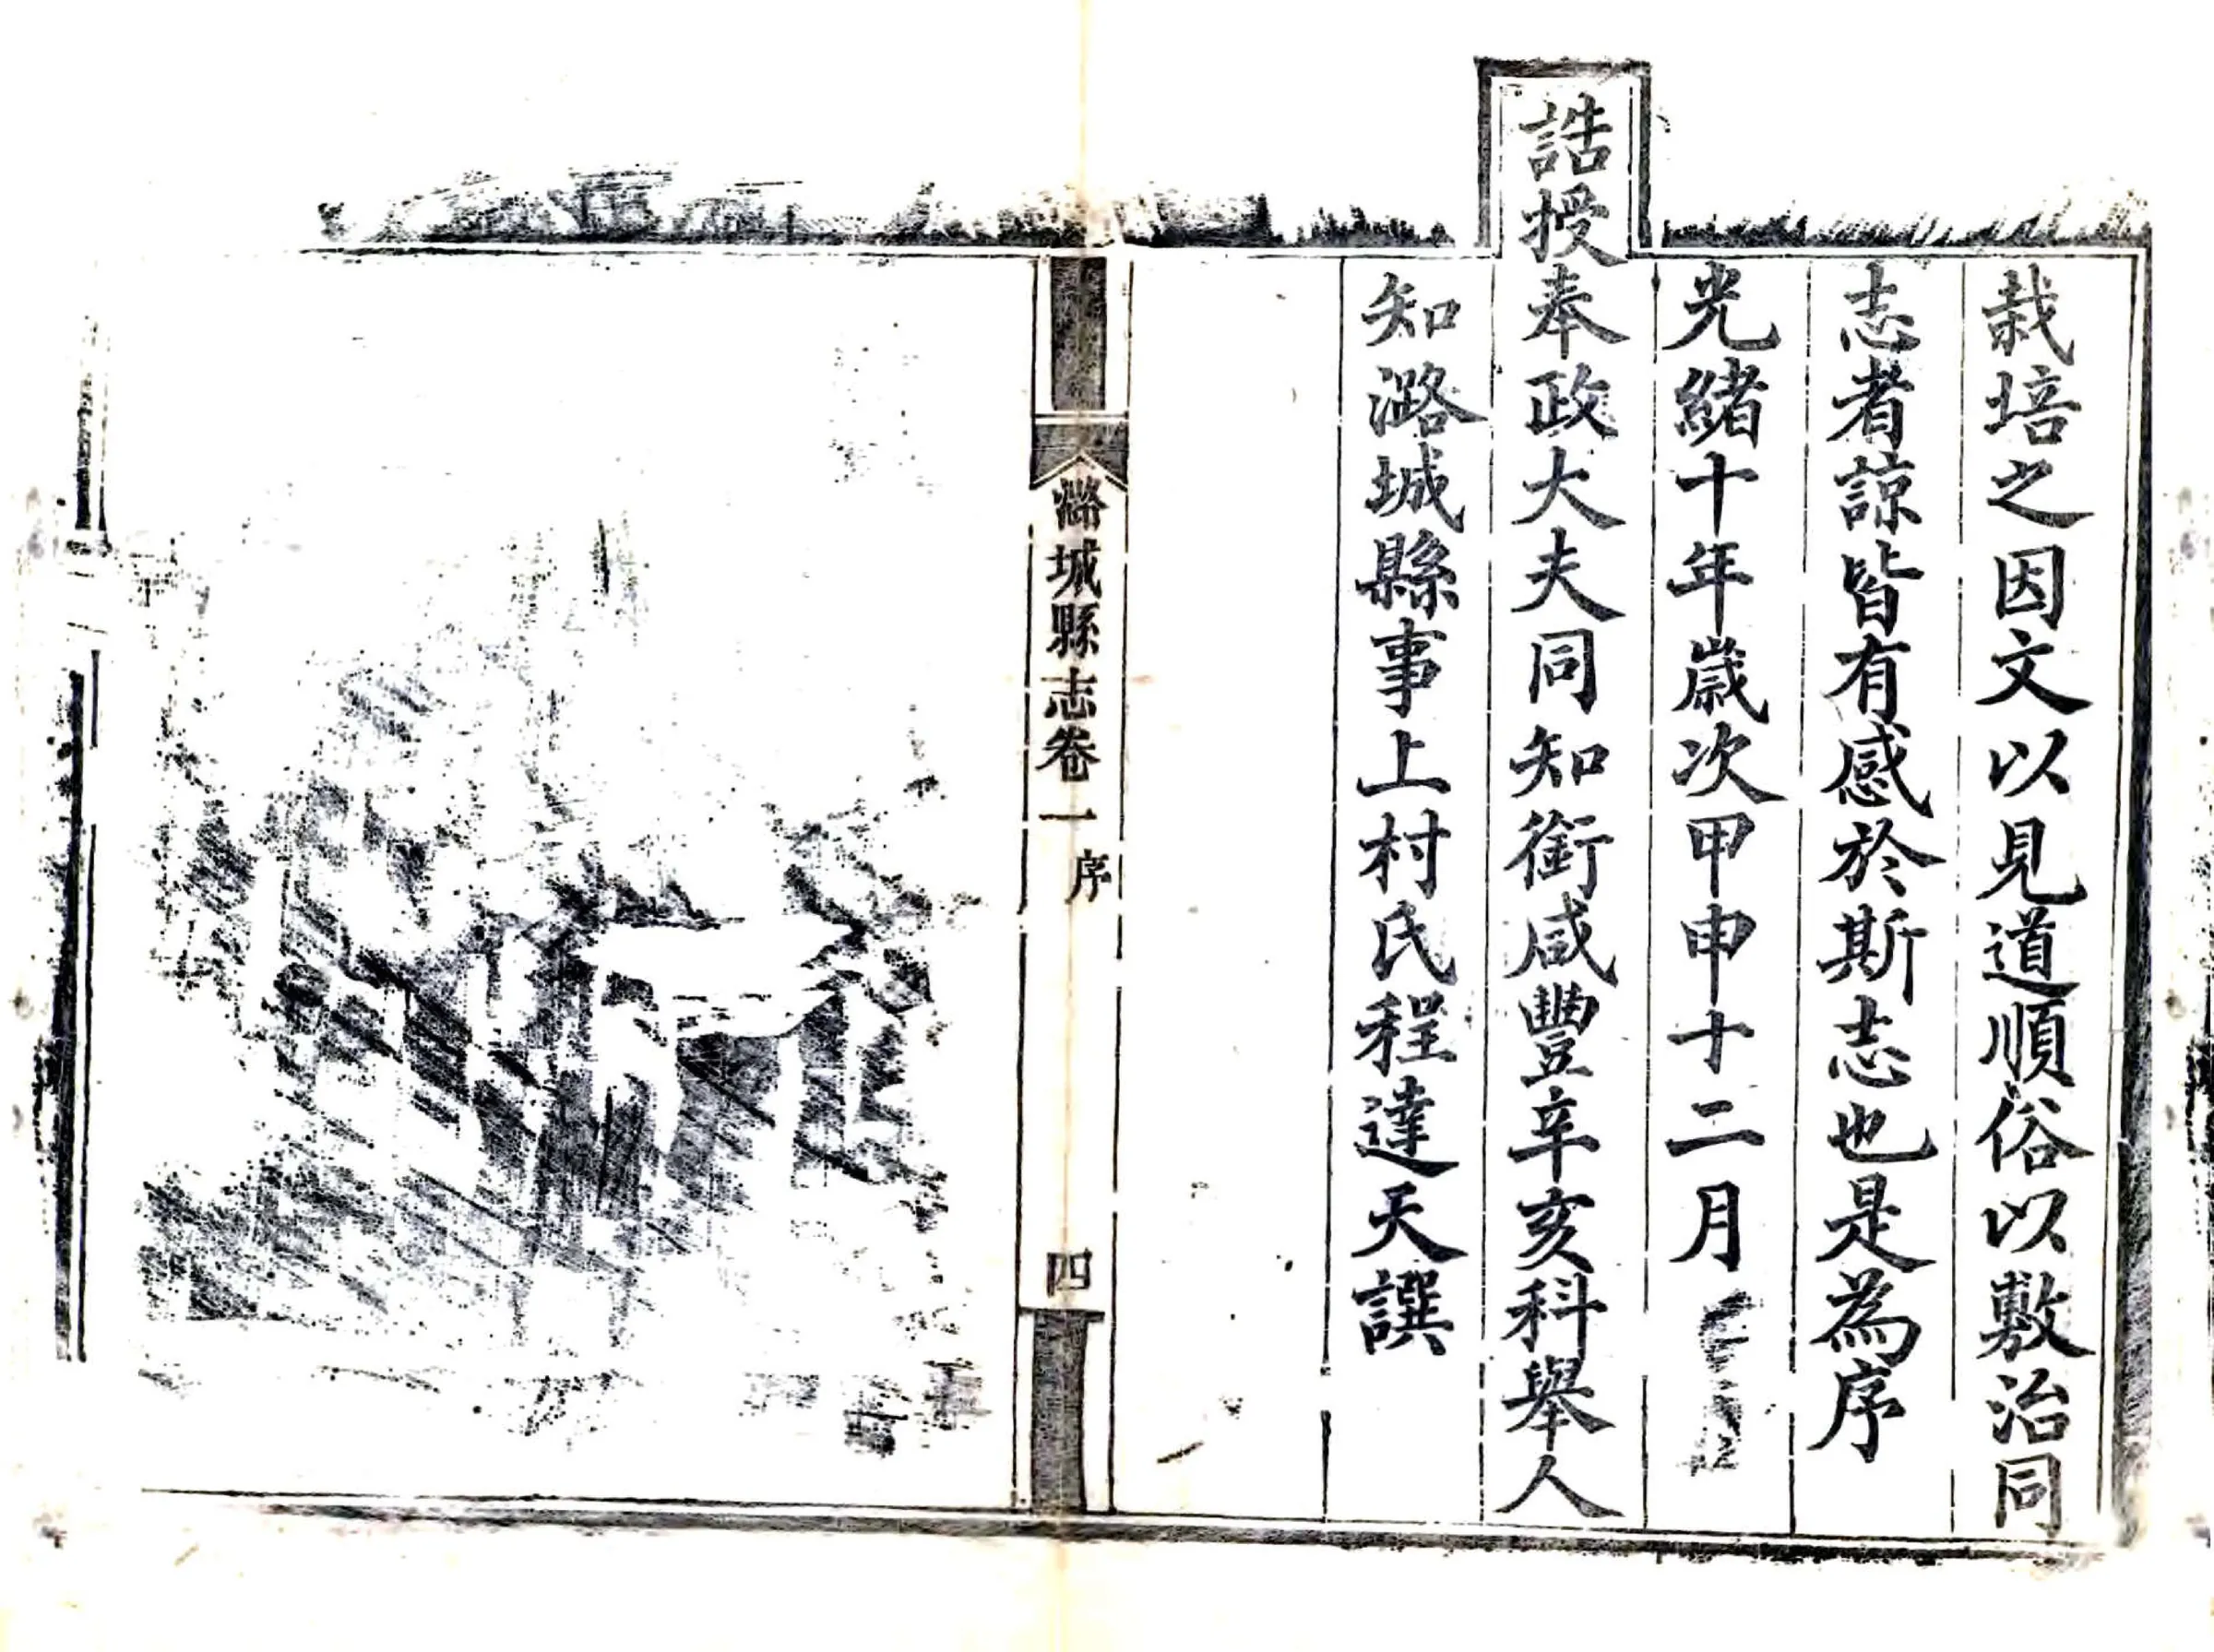 栽培之因文以見道順俗以敷治同
志者諒皆有感於斯志也是為序
光緒十年歲次甲申十二月
誥授奉政大夫同知銜咸豐辛亥科舉人
知潞城縣事上村氏程達天譔
潞城縣志卷一 序 四